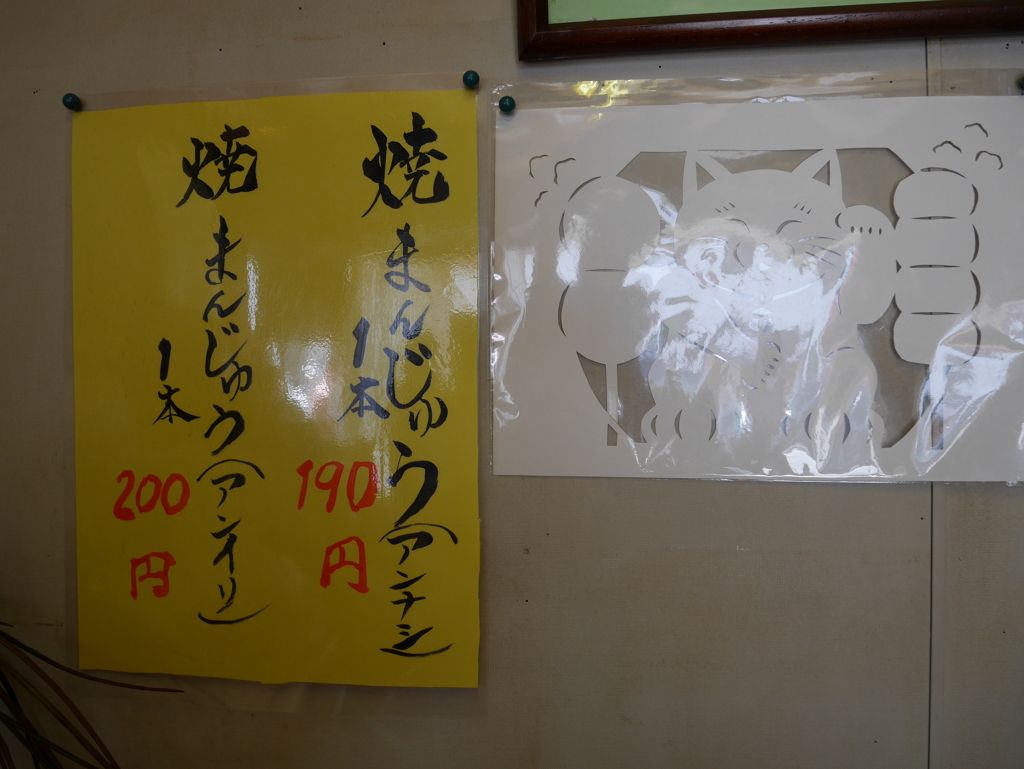 焼まんじゅう(アンナシ)
1本
190
円
焼まんじゅう(アンイリ)
1本
200
円